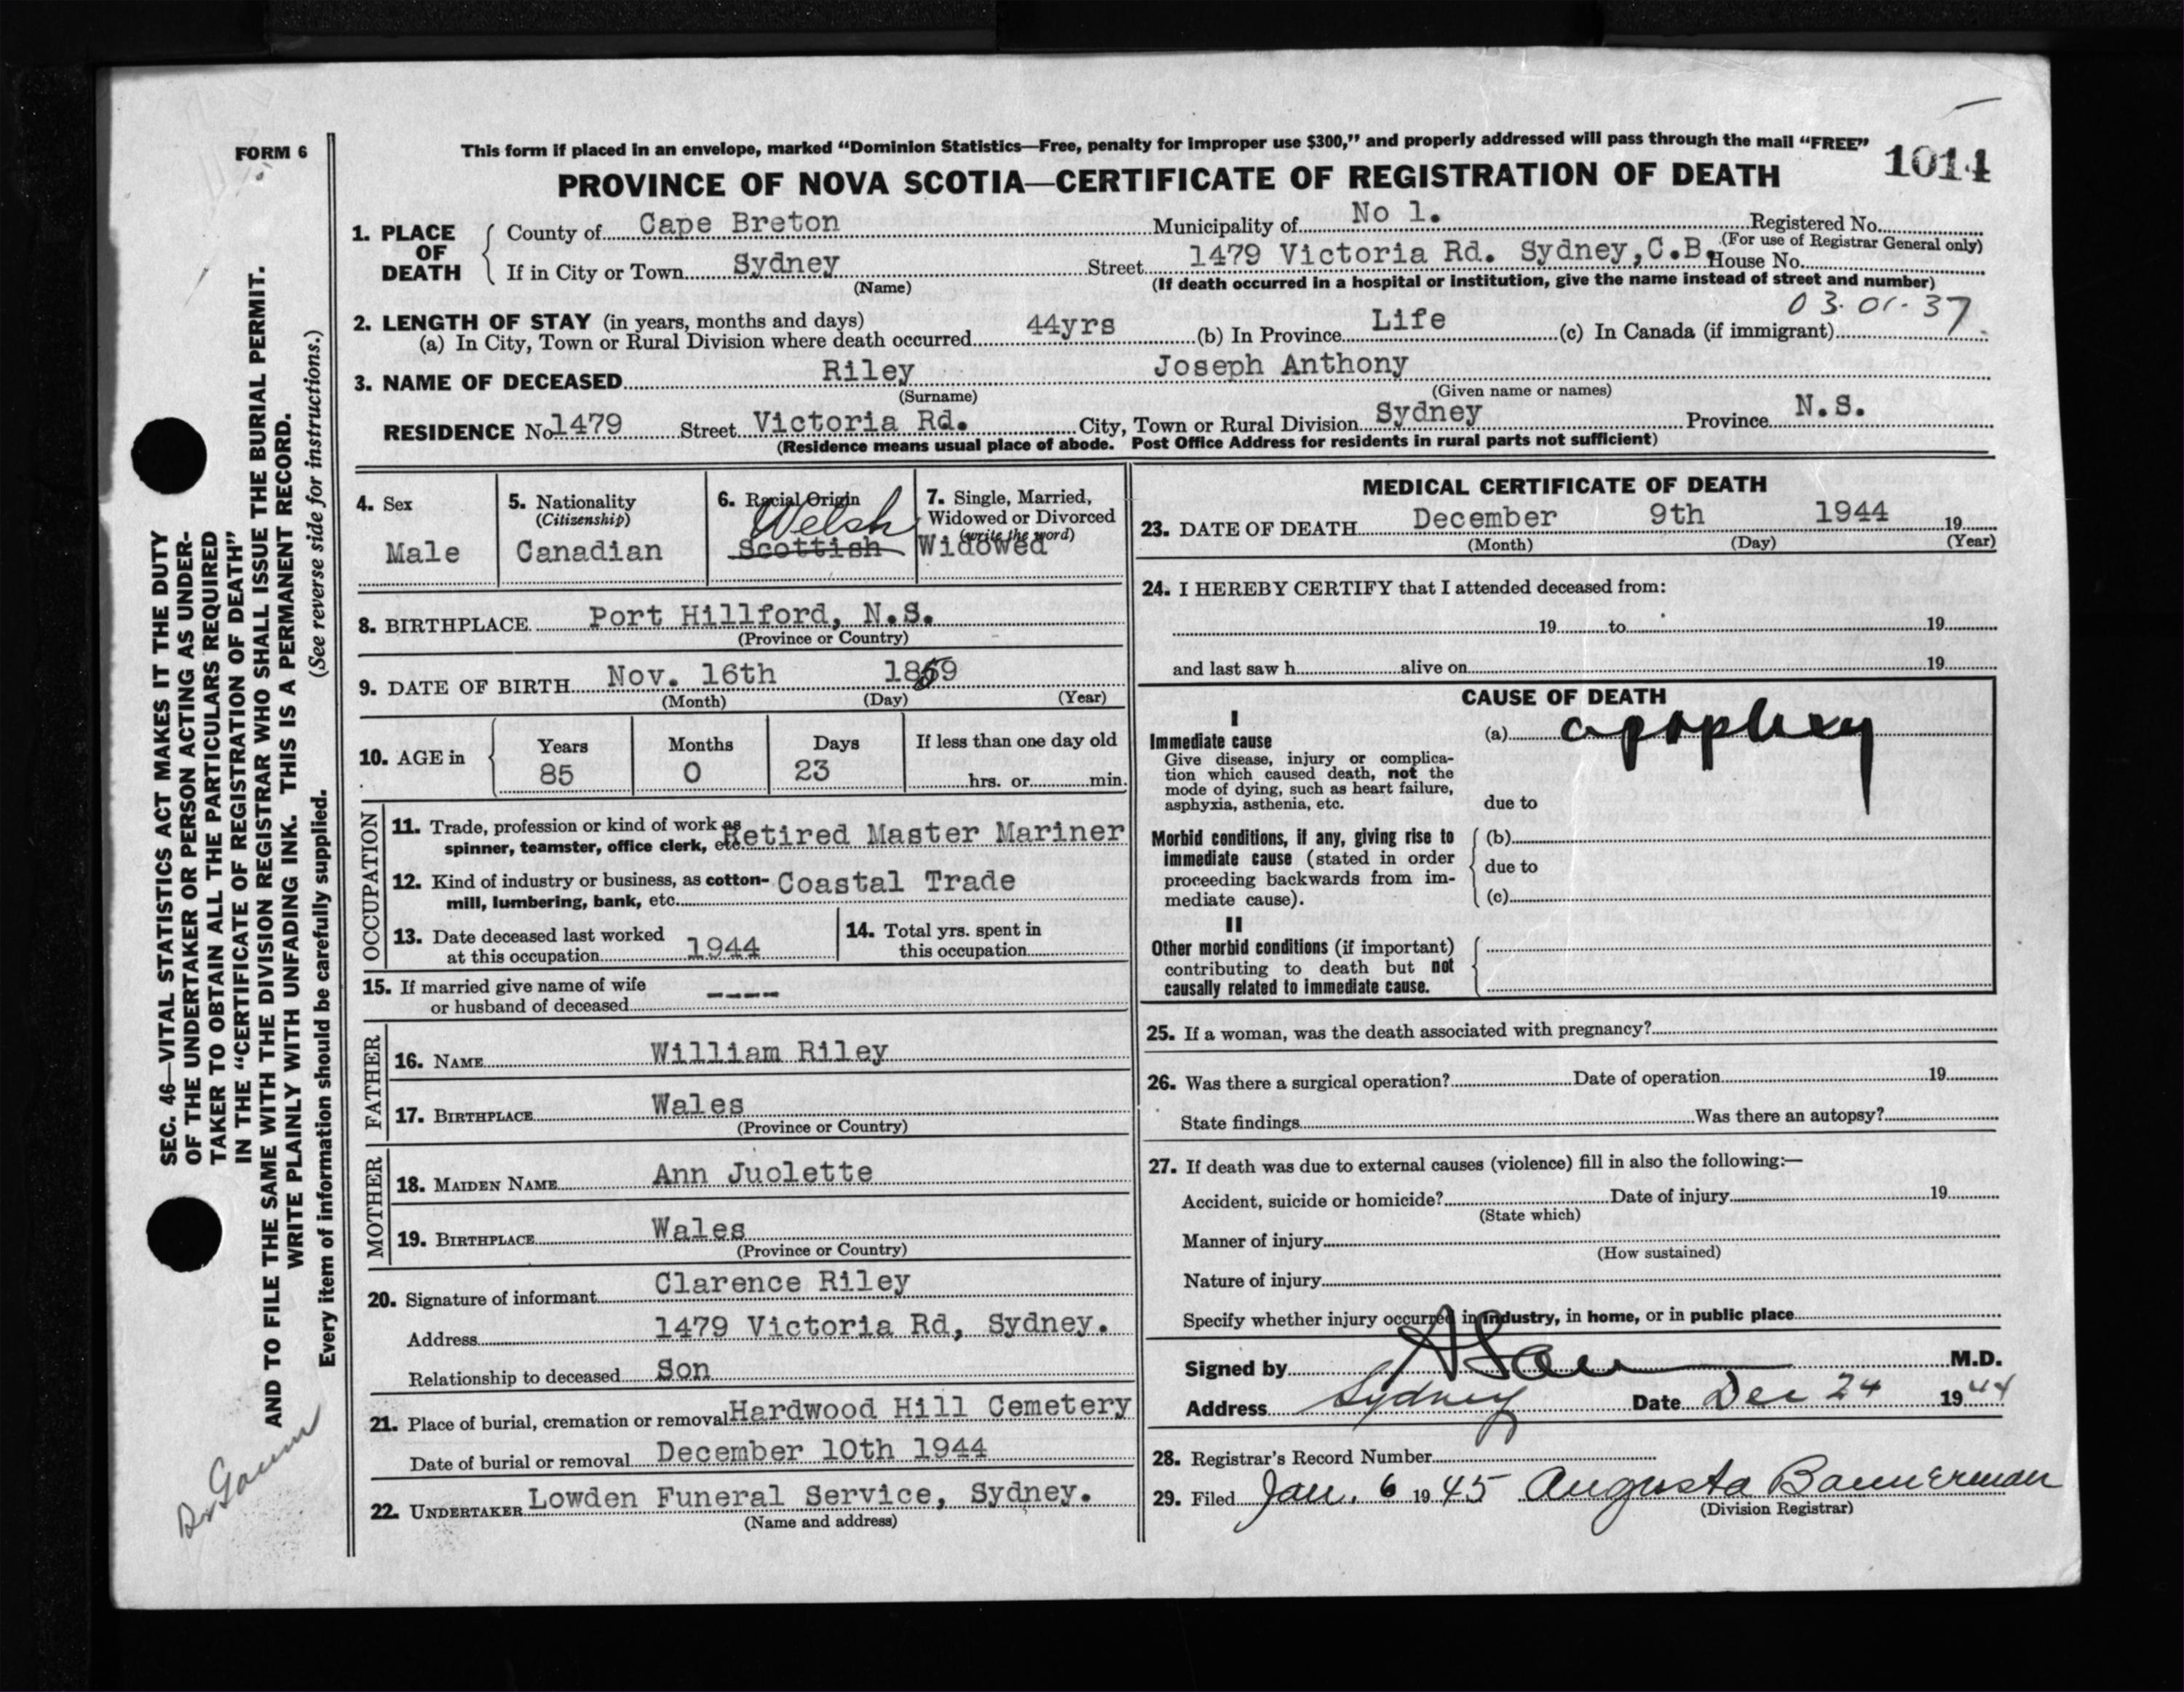 FORM 6
This form if placed in an envelope, marked “Dominion Statistics—Free, penalty for improper use $300,” and properly addressed will pass through the mail “FREE”
1014
PROVINCE OF NOVA SCOTIA—CERTIFICATE OF REGISTRATION OF DEATH
1. PLACE OF DEATH
County of Cape Breton Municipality of No 1. Registered No.
(For use of Registrar General only)
If in City or Town Sydney Street 1479 Victoria Rd. Sydney, C.B. House No.
(Name) (If death occurred in a hospital or institution, give the name instead of street and number)
03.01.37
2. LENGTH OF STAY (in years, months and days)
(a) In City, Town or Rural Division where death occurred 44yrs (b) In Province Life (c) In Canada (if immigrant)
3. NAME OF DECEASED Riley Joseph Anthony
(Surname) (Given name or names)
RESIDENCE No 1479 Street Victoria Rd. City, Town or Rural Division Sydney Province N.S.
(Residence means usual place of abode. Post Office Address for residents in rural parts not sufficient)
4. Sex
Male
5. Nationality
(Citizenship)
Canadian
6. Racial Origin
Welsh
Scottish
7. Single, Married,
Widowed or Divorced
(write the word)
Widowed
8. BIRTHPLACE Port Hillford, N.S.
(Province or Country)
9. DATE OF BIRTH Nov. 16th 1859
(Month) (Day) (Year)
10. AGE in
Years Months Days If less than one day old
85 0 23 hrs. or min.
OCCUPATION
11. Trade, profession or kind of work as
spinner, teamster, office clerk, etc. Retired Master Mariner
12. Kind of industry or business, as cotton-
mill, lumbering, bank, etc. Coastal Trade
13. Date deceased last worked
at this occupation 1944
14. Total yrs. spent in
this occupation
15. If married give name of wife
or husband of deceased ----
FATHER
16. NAME William Riley
17. BIRTHPLACE Wales
(Province or Country)
MOTHER
18. MAIDEN NAME Ann Juolette
19. BIRTHPLACE Wales
(Province or Country)
20. Signature of informant Clarence Riley
Address 1479 Victoria Rd, Sydney.
Relationship to deceased Son
21. Place of burial, cremation or removal Hardwood Hill Cemetery
Date of burial or removal December 10th 1944
22. UNDERTAKER Lowden Funeral Service, Sydney.
(Name and address)
MEDICAL CERTIFICATE OF DEATH
23. DATE OF DEATH December 9th 1944 19
(Month) (Day) (Year)
24. I HEREBY CERTIFY that I attended deceased from:
19 to 19
and last saw h alive on 19
CAUSE OF DEATH
I
Immediate cause
Give disease, injury or complica-
tion which caused death, not the
mode of dying, such as heart failure,
asphyxia, asthenia, etc.
(a) apoplexy
due to
Morbid conditions, if any, giving rise to
immediate cause (stated in order
proceeding backwards from im-
mediate cause).
(b)
due to
(c)
II
Other morbid conditions (if important)
contributing to death but not
causally related to immediate cause.
25. If a woman, was the death associated with pregnancy?
26. Was there a surgical operation? Date of operation 19
State findings Was there an autopsy?
27. If death was due to external causes (violence) fill in also the following:—
Accident, suicide or homicide? Date of injury 19
(State which)
Manner of injury
(How sustained)
Nature of injury
Specify whether injury occurred in industry, in home, or in public place
Signed by M.D.
Address Sydney Date Dec 24 1944
28. Registrar's Record Number
29. Filed Jan. 6 1945 Augusta Bannerman
(Division Registrar)
SEC. 46—VITAL STATISTICS ACT MAKES IT THE DUTY
OF THE UNDERTAKER OR PERSON ACTING AS UNDER-
TAKER TO OBTAIN ALL THE PARTICULARS REQUIRED
IN THE “CERTIFICATE OF REGISTRATION OF DEATH”
AND TO FILE THE SAME WITH THE DIVISION REGISTRAR WHO SHALL ISSUE THE BURIAL PERMIT.
WRITE PLAINLY WITH UNFADING INK. THIS IS A PERMANENT RECORD.
Every item of information should be carefully supplied. (See reverse side for instructions.)